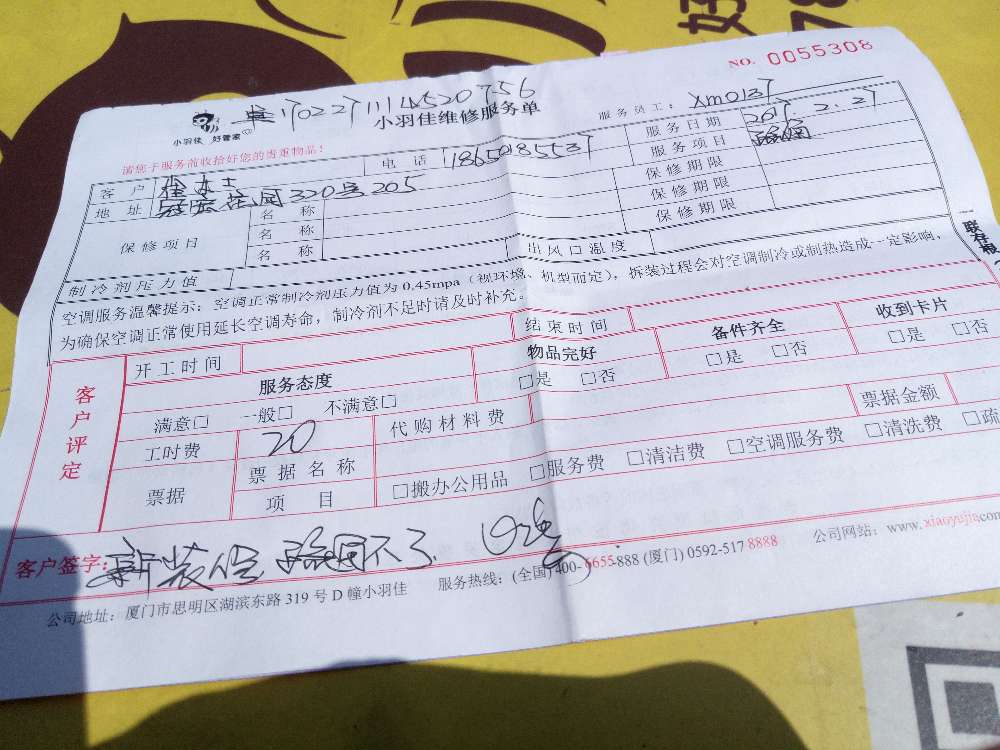 NO. 0055308
1702271114520756
小羽佳 好管家
小羽佳维修服务单
服务员工: xm0137
请您于服务前收拾好您的贵重物品!
电话 18650185537
服务日期 2017.2.27
服务项目
客户
地址 花园320号205
保修期限
保修期限
保修期限
保修项目
名称
名称
名称
制冷剂压力值
出风口温度
空调服务温馨提示: 空调正常制冷剂压力值为 0.45mpa (视环境、机型而定), 拆装过程会对空调制冷或制热造成一定影响,
为确保空调正常使用延长空调寿命, 制冷剂不足时请及时补充。
客户评定
开工时间
结束时间
服务态度
物品完好
备件齐全
收到卡片
满意□ 一般□ 不满意□
□是 □否
□是 □否
□是 □否
工时费 20
代购材料费
票据金额
票据
票据名称
项目
□搬办公用品 □服务费 □清洁费 □空调服务费 □清洗费 □疏
客户签字:
不了.
公司地址: 厦门市思明区湖滨东路 319 号 D 幢小羽佳
服务热线: (全国) 400-6655-888 (厦门) 0592-517 8888
公司网站: www.xiaoyujia.com